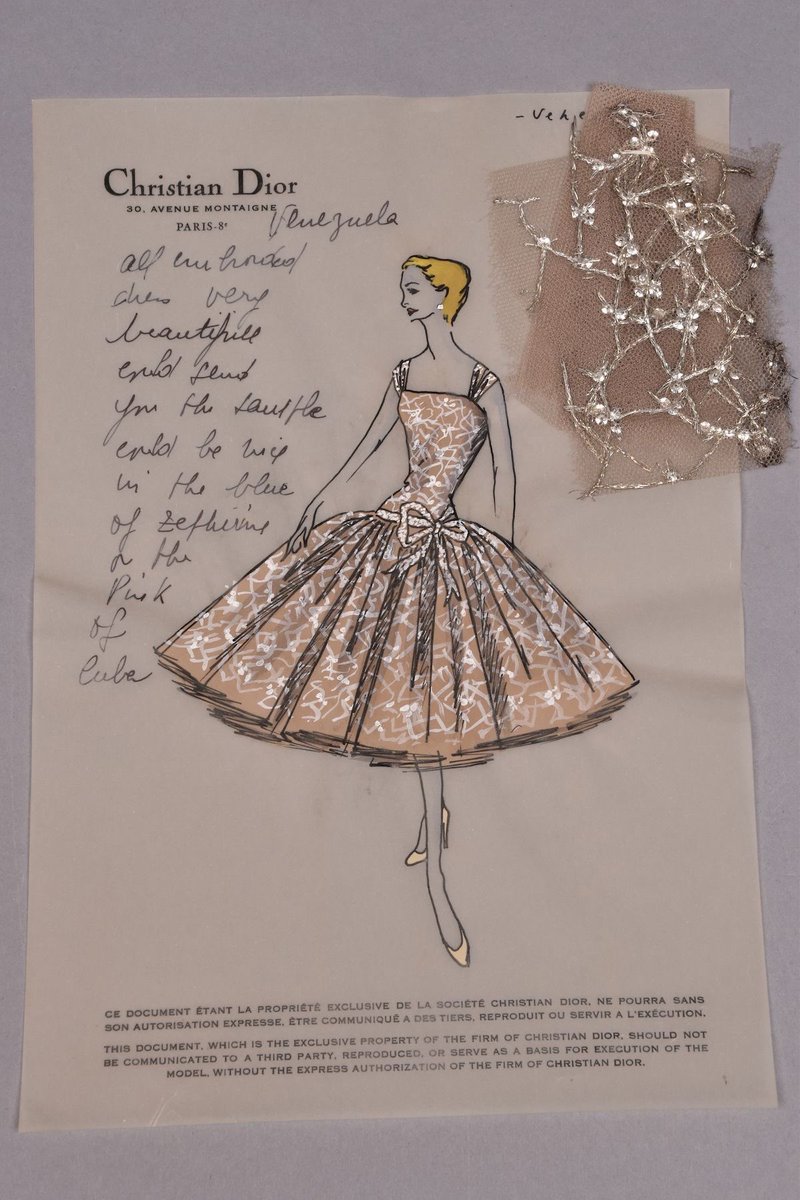 - Vene
Christian Dior
30, AVENUE MONTAIGNE
PARIS-8e
Venezuela
all embroded
dress very
beautifull
could send
you the sample
could be nice
in the blue
of Zephirine
or the
Pink
of
Cuba
CE DOCUMENT ÉTANT LA PROPRIÉTÉ EXCLUSIVE DE LA SOCIÉTÉ CHRISTIAN DIOR, NE POURRA SANS
SON AUTORISATION EXPRESSE, ÊTRE COMMUNIQUÉ A DES TIERS, REPRODUIT OU SERVIR A L'EXÉCUTION.
THIS DOCUMENT, WHICH IS THE EXCLUSIVE PROPERTY OF THE FIRM OF CHRISTIAN DIOR, SHOULD NOT
BE COMMUNICATED TO A THIRD PARTY, REPRODUCED, OR SERVE AS A BASIS FOR EXECUTION OF THE
MODEL, WITHOUT THE EXPRESS AUTHORIZATION OF THE FIRM OF CHRISTIAN DIOR.